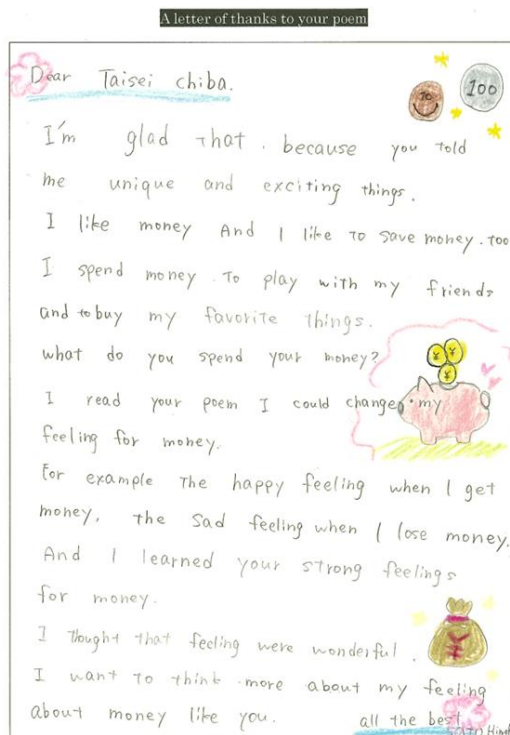 A letter of thanks to your poem
Dear Taisei Chiba.
10 100
I'm glad that. because you told
me unique and exciting things.
I like money And I like to save money. too
I spend money. To play with my friends
and to buy my favorite things.
what do you spend your money?
¥ ¥
¥
I read your poem I could change my
feeling for money.
For example The happy feeling when I get
money, the sad feeling when I lose money.
And I learned your strong feelings
for money.
I thought that feeling were wonderful.
¥
I want to think more about my feeling
about money like you. all the best